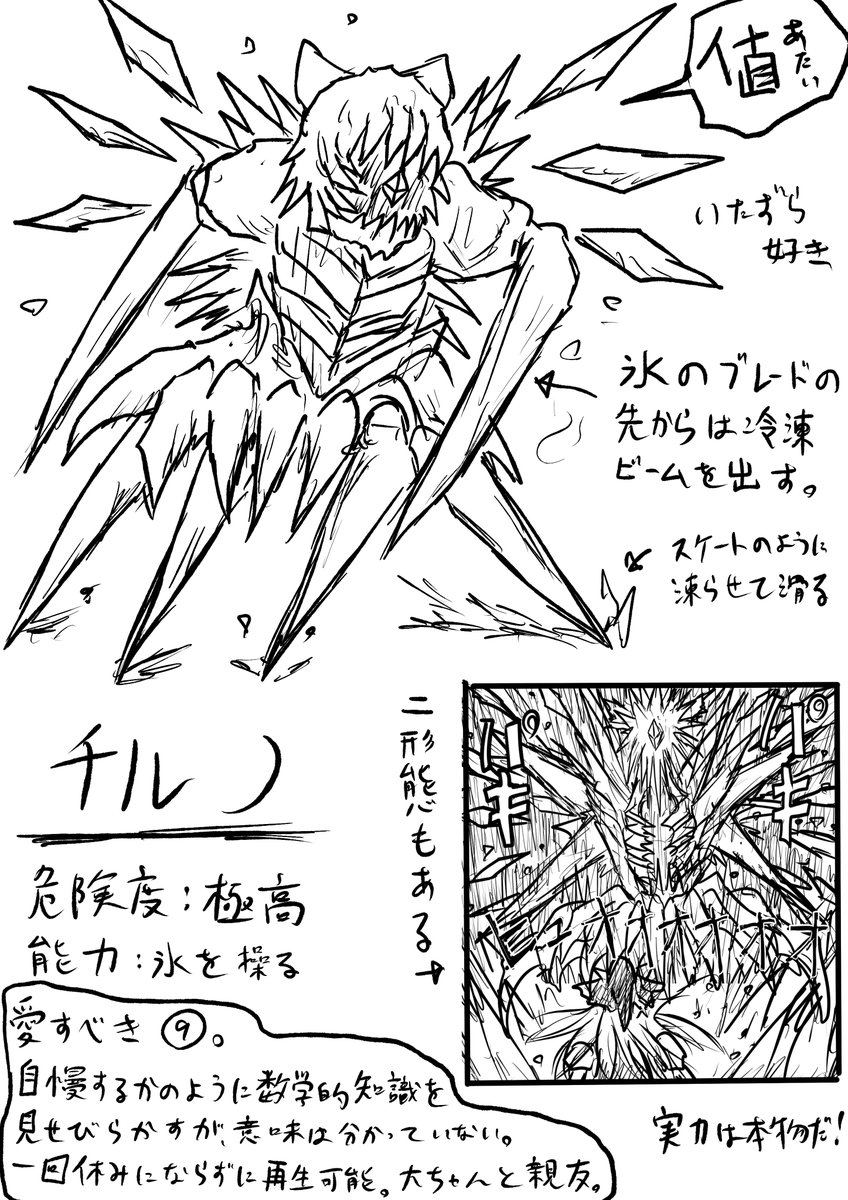 値
あたい
いたずら
好き
氷のブレードの
先からは冷凍
ビームを出す。
スケートのように
凍らせて滑る
チルノ
危険度:極高
能力:氷を操る
二形態もある→
バキ
バキ
ピュオオオオオオ
愛すべき⑨。
自慢するかのように数学的知識を
見せびらかすが、意味は分かっていない。
一回休みにならずに再生可能。大ちゃんと親友。
実力は本物だ!